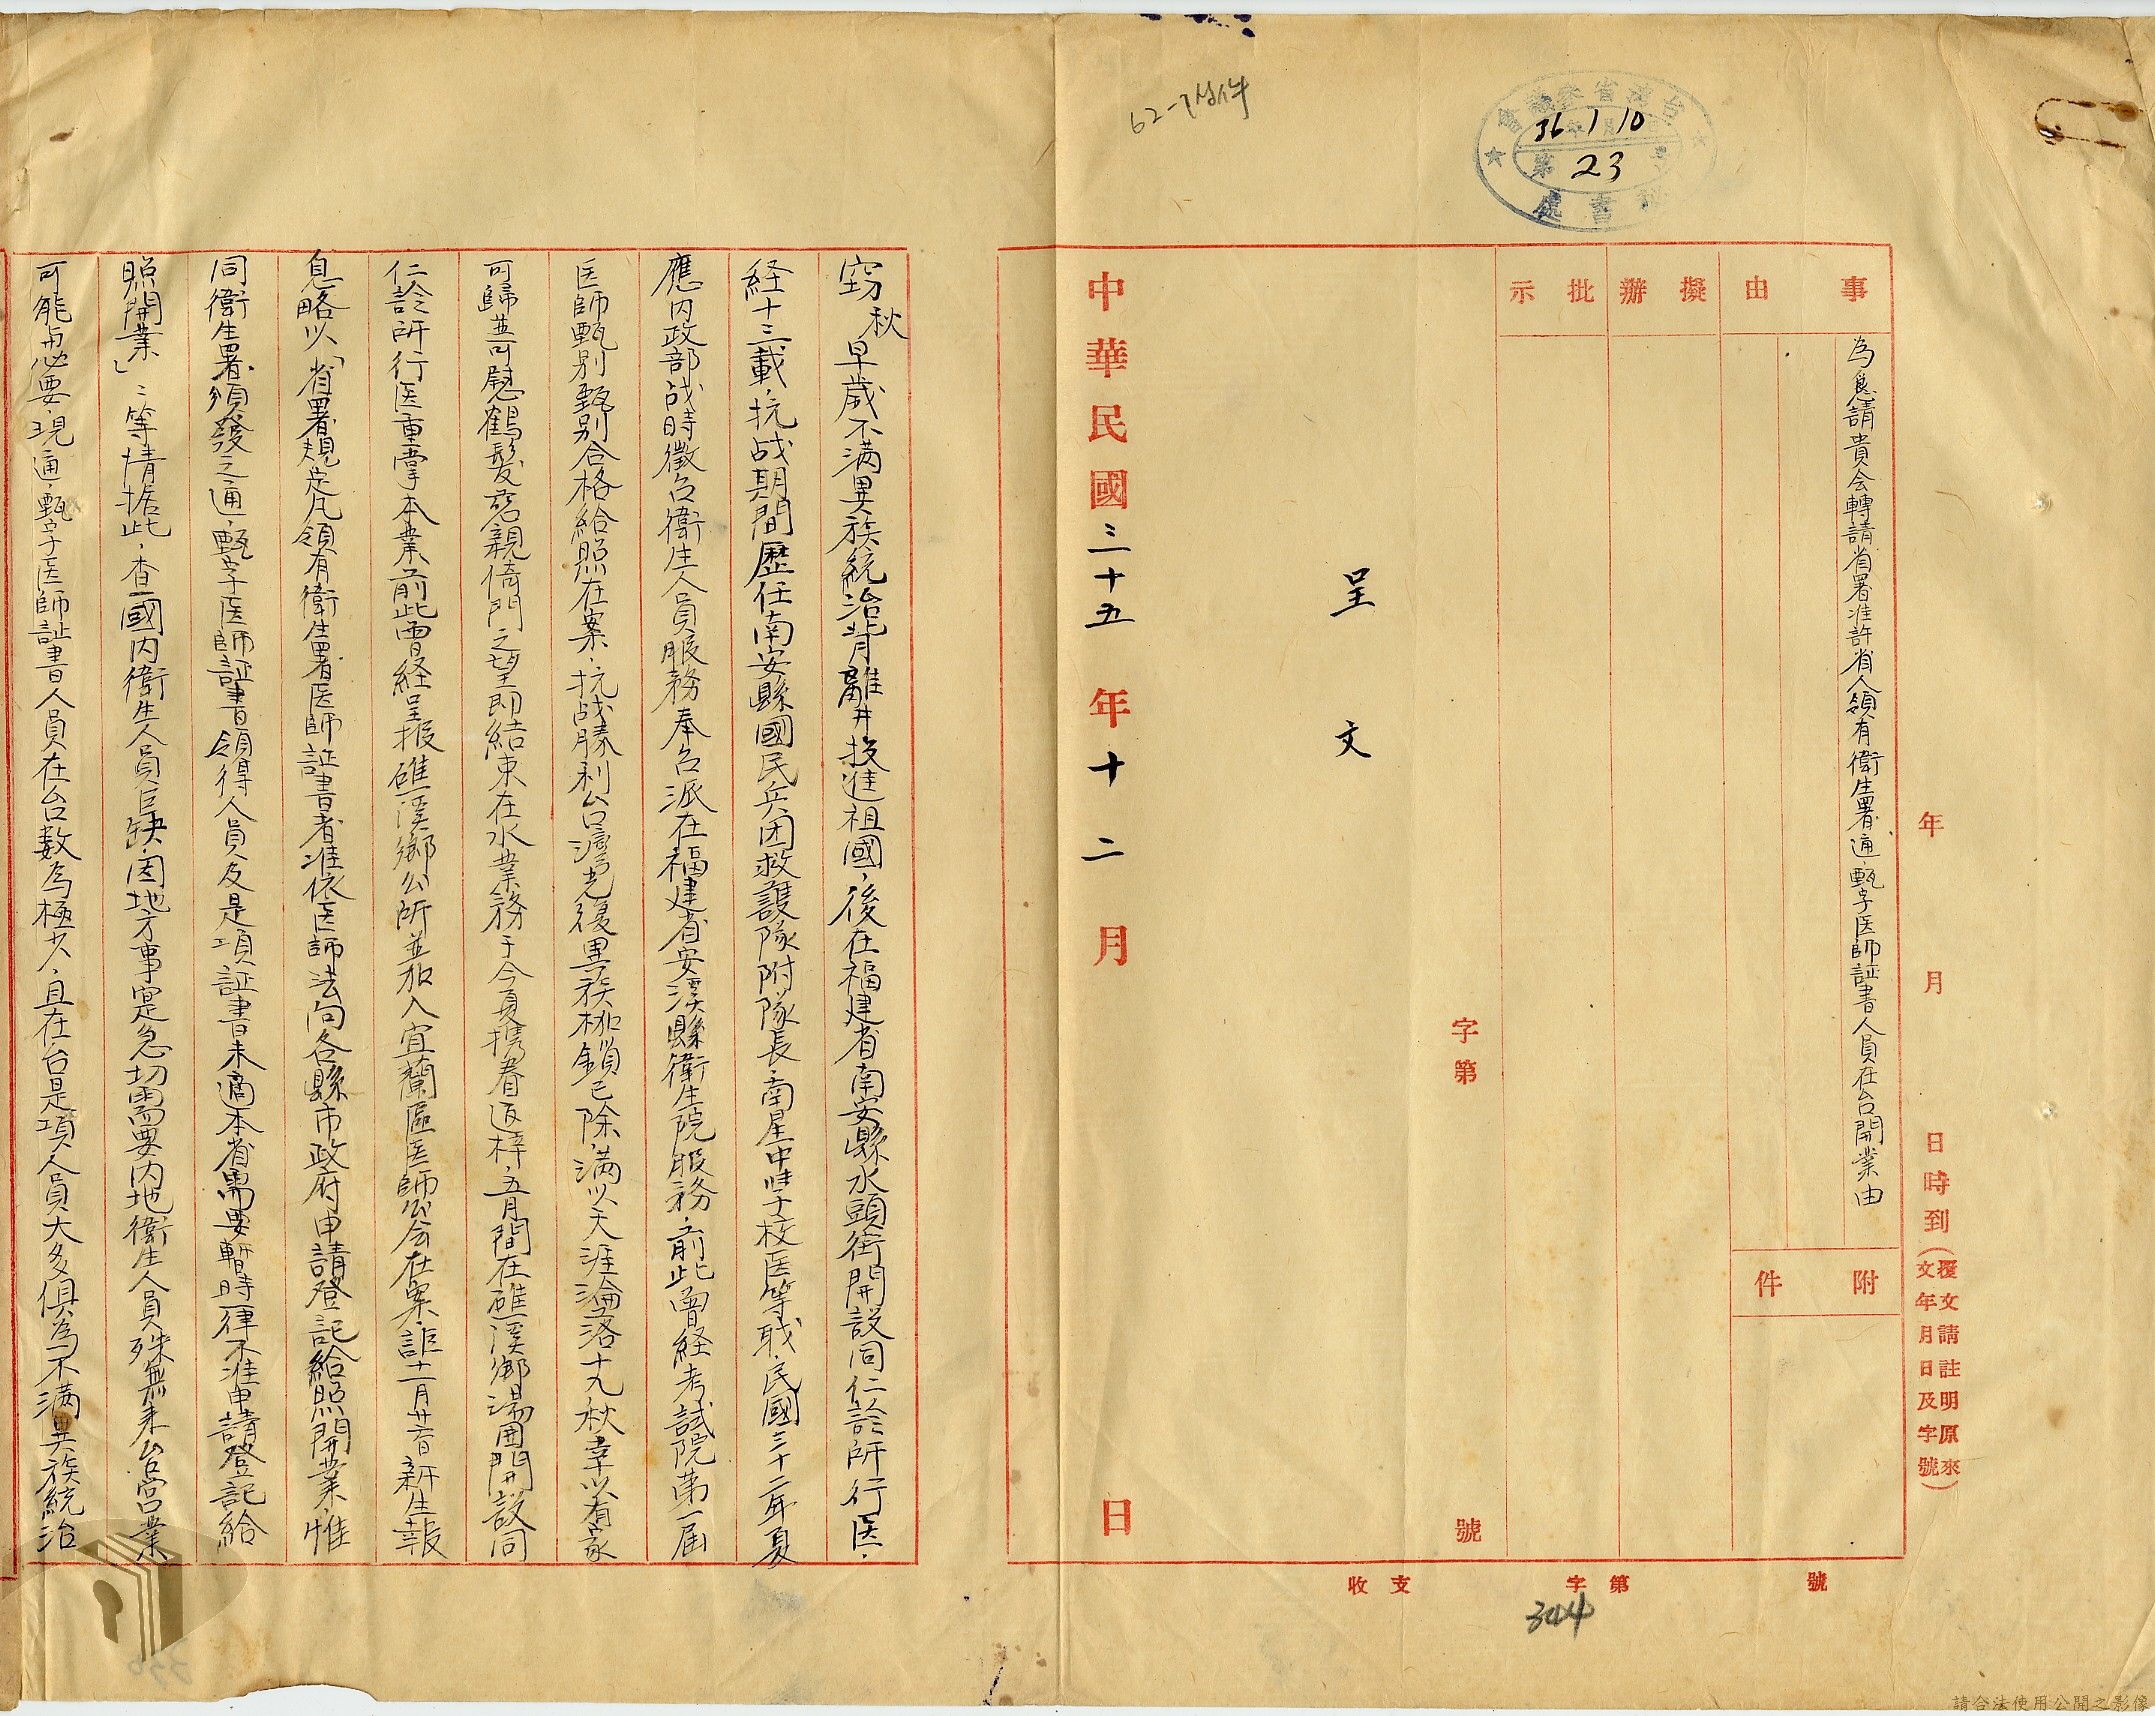 62-7附件
台灣省參議會
36 1 10
第 23 號
秘書處
年 月 日 時到(覆文請註明原來文年月日及字號)
事由
為急請貴会轉請省署准許省人領有衛生署通.甄字医師証書人員在台開業由
附件
擬辦
批示
字第 號
呈文
中華民國三十五年十二月 日
收支 字第 號
344
窃秋早歲不满異族統治背離井投進祖國,後在福建省南安縣水頭街開設同仁診所行医,
経十三載,抗战期間歷任南安縣國民兵团救護隊附隊長,南星中学校医等职,民國三十二年夏
應内政部战時徵召衛生人員服務奉召派在福建省安溪縣衛生院服務,前此曾経考試院第一届
医師甄别甄别合格給照在案,抗战勝利台灣光復異族枷鎖已除,满以天涯淪落十九秋幸以有家
可歸並可慰鶴髮慈親倚門之望即結束在水業務于今夏携眷返梓,五月間在礁溪鄉湯囲開設同
仁診所行医重掌本業前此曾経呈报礁溪鄉公所並加入宜蘭區医師公会在案,詎十一月廿 日新生報
息略以「省署規定凡領有衛生署医師証書者准依医師法向各縣市政府申請登記給照開業惟
同衛生署頒發之通.甄字医師証書領得人員及是項証書未適本省需要暫時一律不准申請登記給
照開業」云等情据此,查國内衛生人員巨缺,因地方事寔急切需要内地衛生人員殊無来台营業
可能与必要,現通.甄字医師証書人員在台數為極少,且在台是項人員大多俱為不满異族統治
請合法使用公開之影像